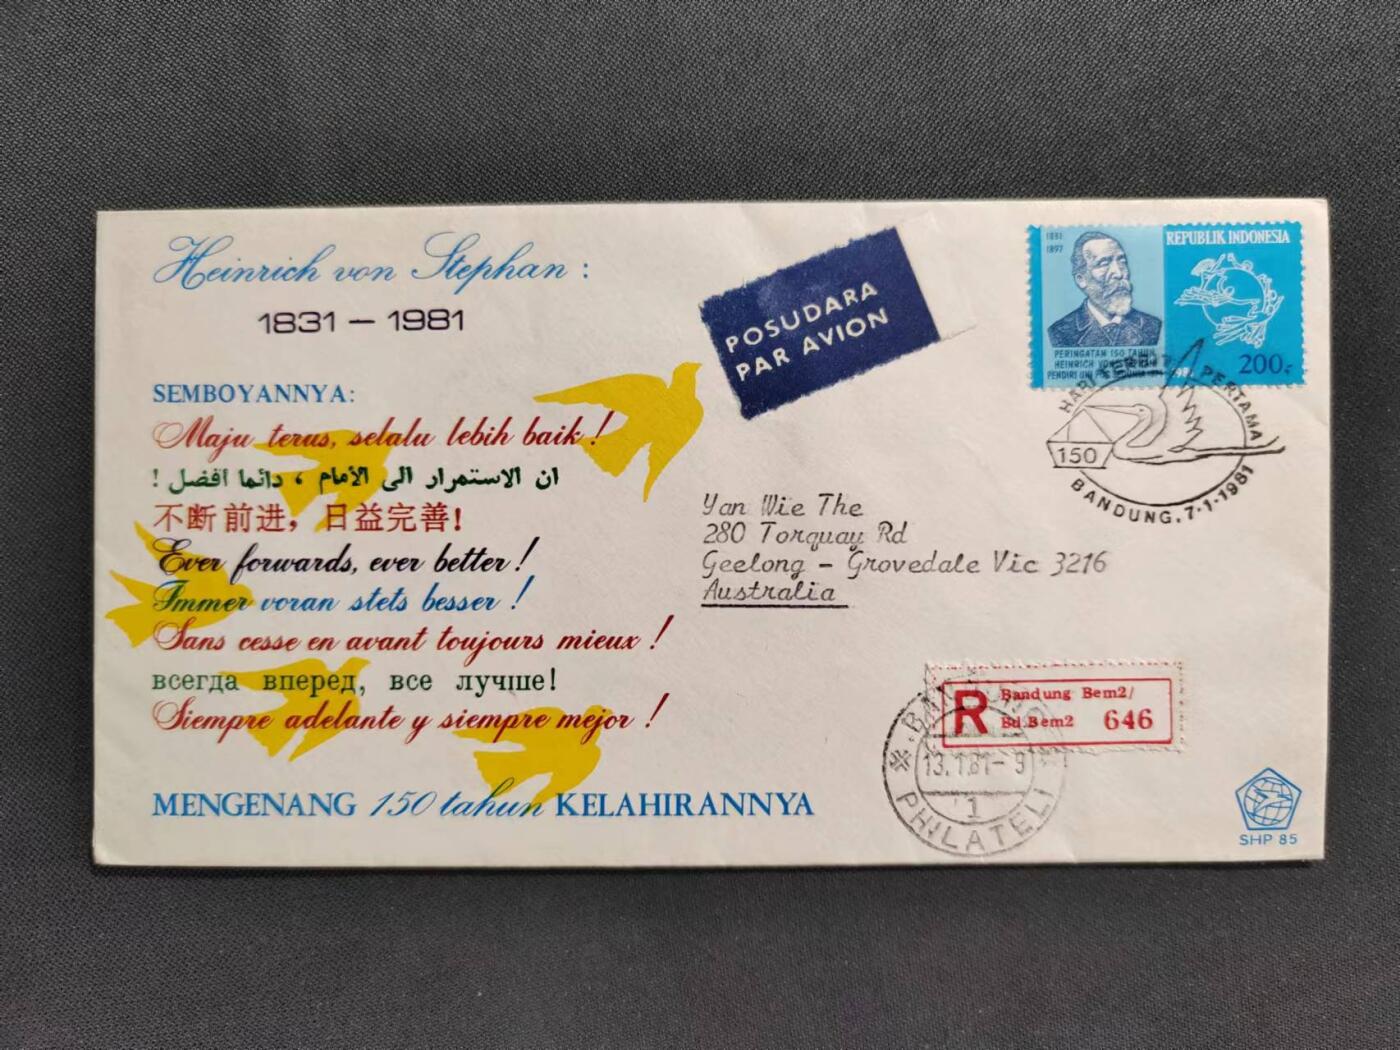 Heinrich von Stephan :
1831 – 1981
SEMBOYANNYA:
Maju terus, selalu lebih baik !
ان الاستمرار الى الأمام ، دائما افضل !
不断前进，日益完善!
Ever forwards, ever better !
Immer voran stets besser !
Sans cesse en avant toujours mieux !
всегда вперед, все лучше!
Siempre adelante y siempre mejor !
MENGENANG 150 tahun KELAHIRANNYA
POSUDARA
PAR AVION
1831
1897
REPUBLIK INDONESIA
PERINGATAN 150 TAHUN
HEINRICH VON STEPHAN
PENDIRI
1981
200,-
HARI TERBIT PERTAMA
150
BANDUNG, 7-1-1981
Yan Wie The
280 Torquay Rd
Geelong – Grovedale Vic 3216
Australia
R
Bandung Bem2/
Bd Bem2 646
13.1.81- 9
1
PHILATELI
SHP 85